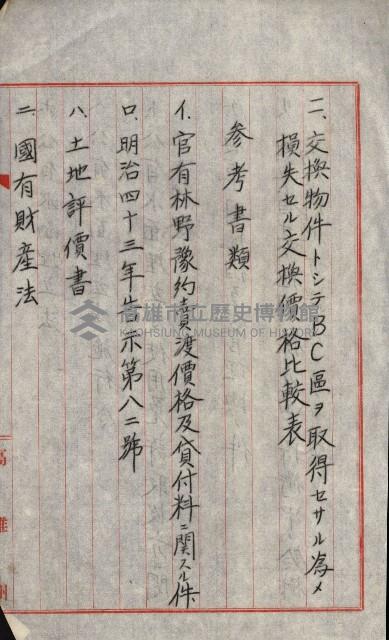 二、交換物件トシテBC區ヲ取得セサル為メ
損失セル交換價格比較表
参考書類
イ、官有林野豫約賣渡價格及貸付料ニ関スル件
ロ、明治四十三年告示第八二號
ハ、土地評價書
ニ、國有財産法
高雄州
高雄市立歷史博物館
KAOHSIUNG MUSEUM OF HISTORY